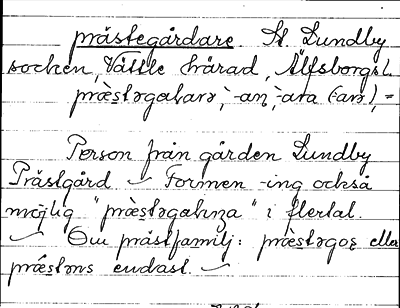 prästegårdare. St. Lundby
socken, Vättle härad, Älfsborgs l.
præ̀stəgaharə, -aṇ, -ara (-arə), =
Person från gården Lundby
Prästgård ✓ Formen -ing också
möjlig "præ̀stəgahṇa" i flertal.
✓ Om prästfamilj: præ̀stəgos eller
præ̀stəns endast. ✓